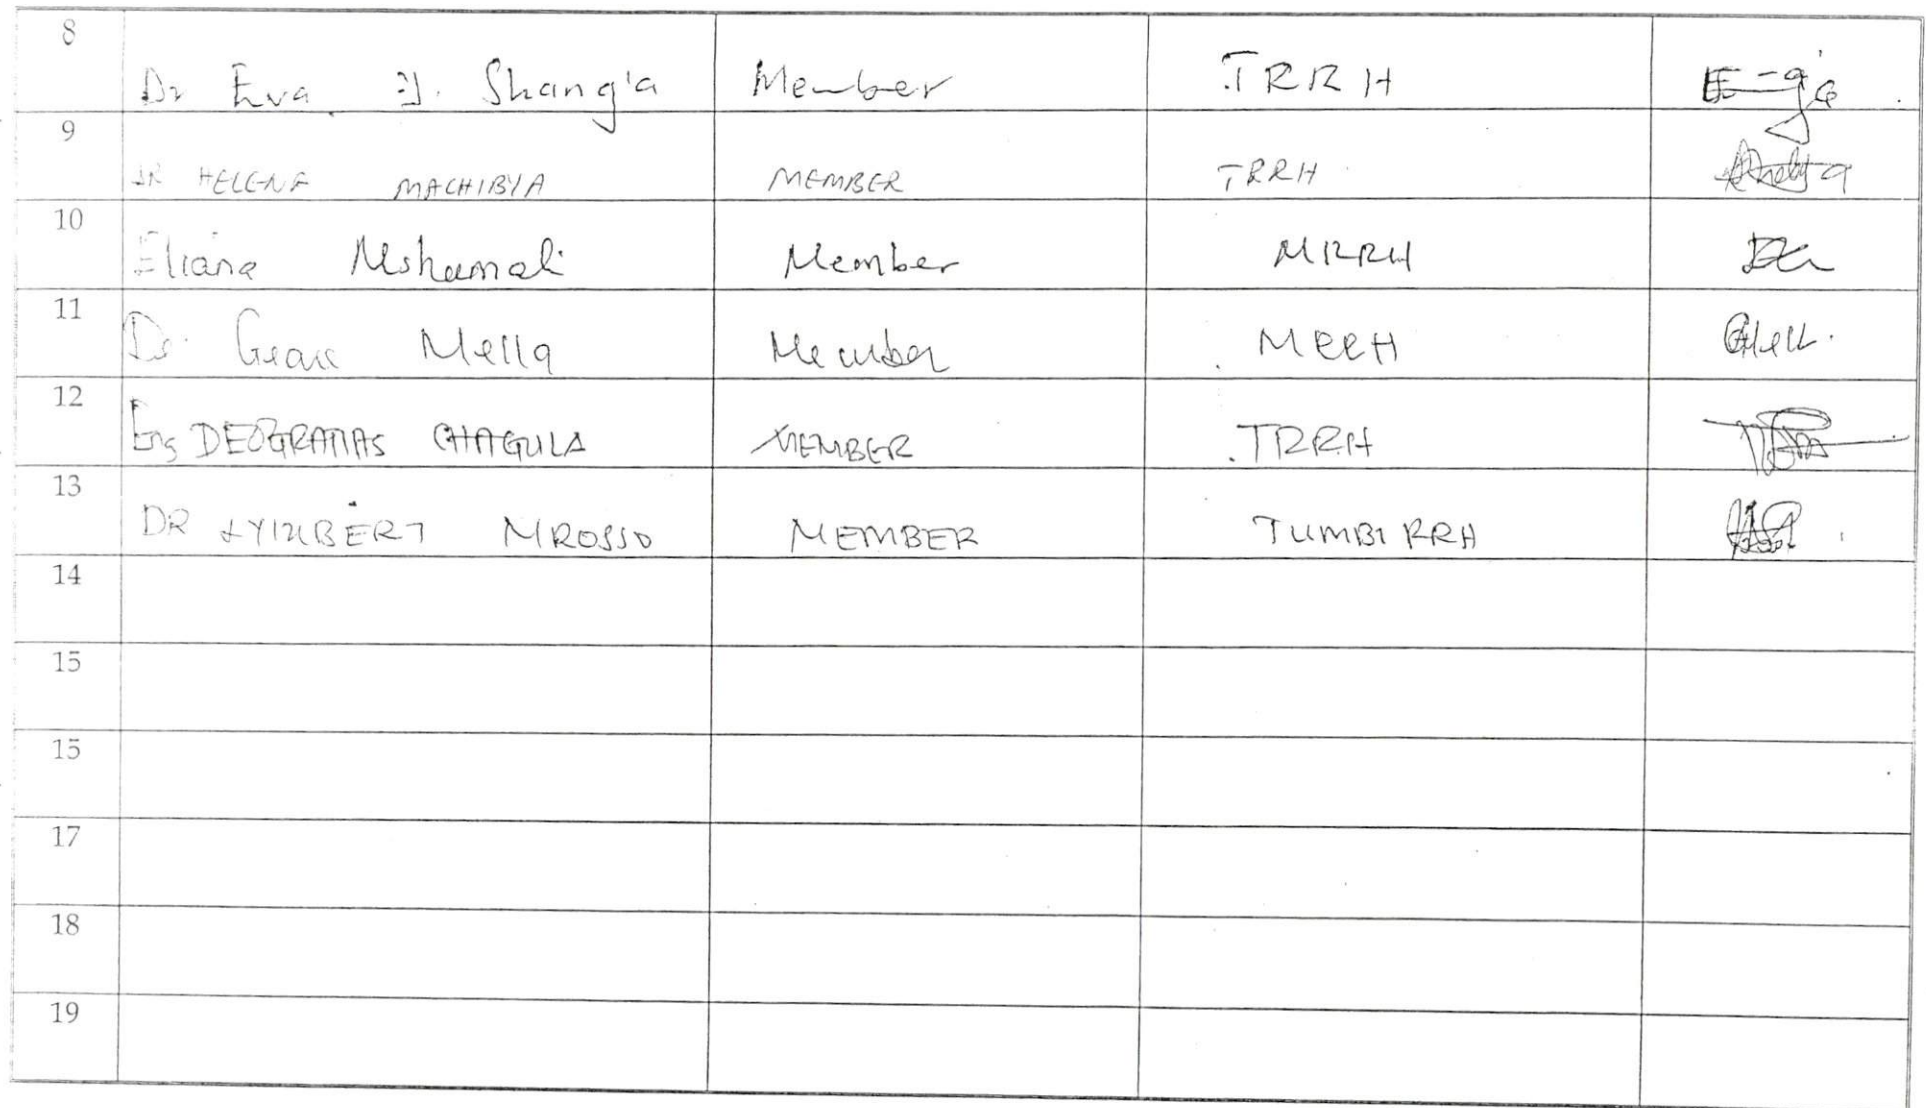 8
Dr Eva J. Shang'a Member TRRH
9
DR HELENA MACHIBYA MEMBER TRRH
10
Eliana Mshamali Member MRRH
11
Dr. Mella Member MRRH
12
Eng DEOGRATIAS CHAGULA MEMBER TRRH
13
DR MROSSO MEMBER TUMBI RRH
14
15
15
17
18
19